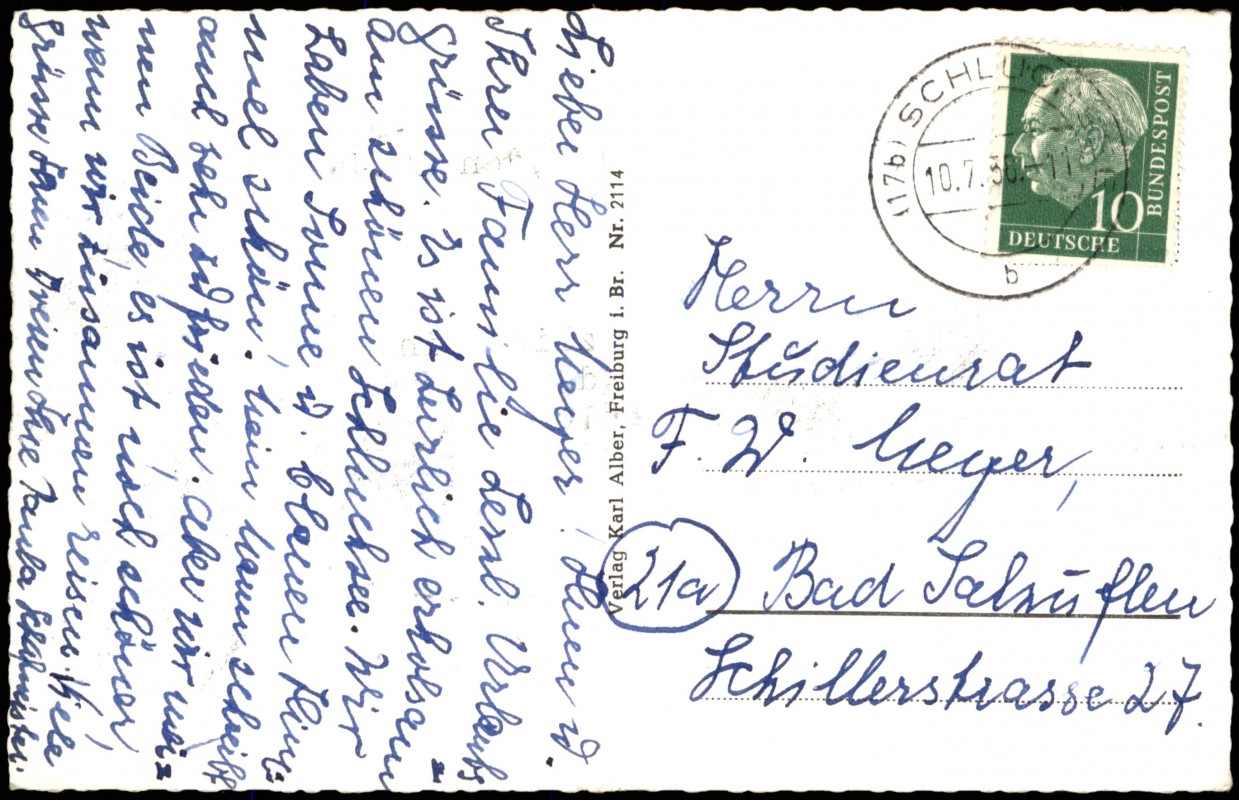 Lieber Herr Meyer! Ihnen u.
Ihrer Familie herzl. Urlaubs=
grüsse. Es ist herrlich erholsam
am schönen Schluchsee. Wir
haben Sonne u. blauen Him=
mel schön. Mein Mann schreibt
auch sehr zufrieden. Aber wir mei=
nen Beide, es ist noch schöner,
wenn wir zusammen reisen. Viele
Grüsse Ihnen Ihre Paula
Verlag Karl Alber, Freiburg i. Br. Nr. 2114
(17b) SCHLUC
10.7.58.-11
b
10
DEUTSCHE
BUNDESPOST
Herrn
Studienrat
F. W. Meyer,
21a Bad Salzuflen
Schillerstrasse 27.